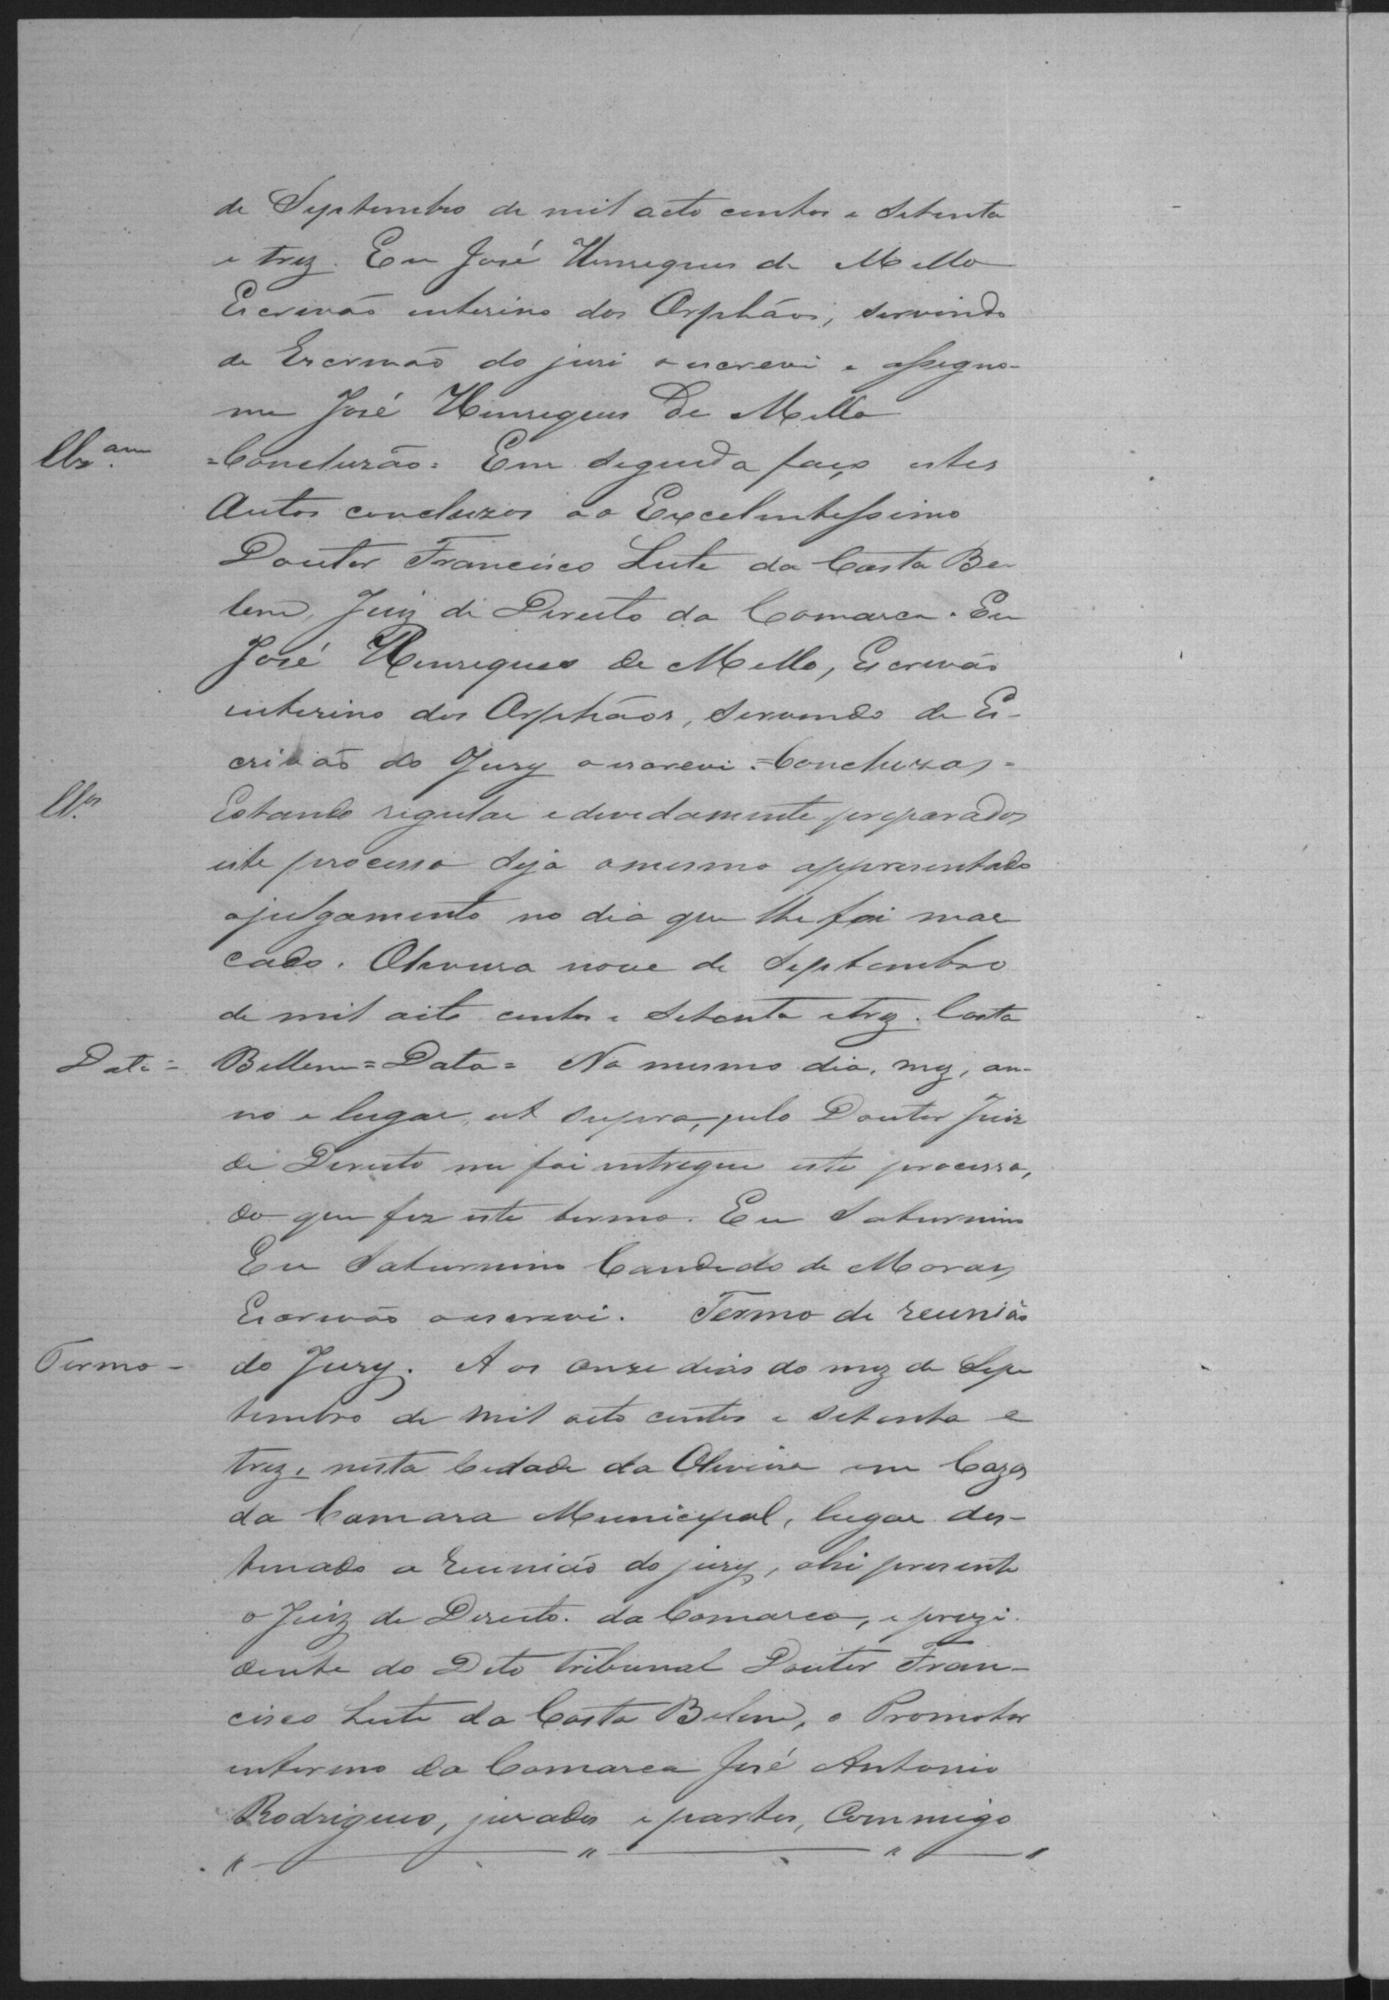 de Septembro de mil oito centos e Setenta
e trez. Eu José Henriques de Mello
Escrivão enterino dos Orphãos, servindo
de Escrivão do juri o escrevi e assigno-
me José Henriques De Mello
=Concluzão= Em seguida faço estes
Autos concluzos ao Excelentissimo
Doutor Francisco Leite da Costa Be-
lem, Juiz de Direito da Comarca. Eu
José Henriques de Mello, Escrivão
interino dos Orphãos, servindo de Es-
crivão do Jury o escrevi. =Concluzos=
Estando regular e devedamente preparados
este processo seja o mesmo appresentado
a julgamento no dia que lhe foi mar
cado. Oliveira nove de Septembro
de mil oito centos e Setenta e trez. Costa
Data= Bellem=Data= No mesmo dia, mez, an-
no e lugar, ut supra, pelo Doutor Juiz
de Direito me foi entregue este processo,
do que fiz este termo. Eu Saturnino
Eu Saturnino Candido de Moraes
Escrivão o escrevi. Termo de reunião
Termo- do Jury. Aos onze dias do mez de Sep
tembro de mil oito centos e setenta e
trez, nesta Cidade da Oliveira em Cazas
da Camara Municipal, lugar des-
tinado a reunião do jury, ahi presente
o Juiz de Direito. da Comarca, e prezi-
dente do Dito tribunal Doutor Fran-
cisco Leite da Costa Belem, o Promotor
enterino da Comarca José Antonio
Rodrigues, jurados e partes, Commigo